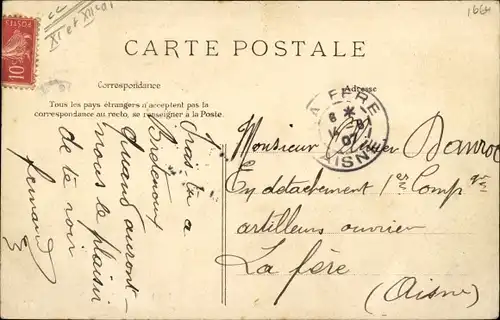 XI et XII
CARTE POSTALE
Correspondance
Adresse
Tous les pays étrangers n'acceptent pas la
correspondance au recto, se renseigner à la Poste.
POSTES
10c
LA FERE
AISNE
Irais-tu à
quand auront-
nous le plaisir
de te voir
Fernand
Monsieur
En détachement 1er Comp
artilleurs ouvriers
La fère
(Aisne)